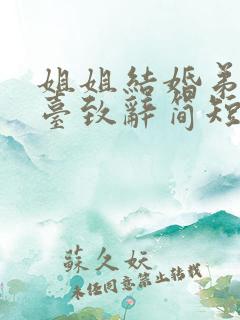 姐姐結婚弟
臺致辭简短
蘇久妧
未经同意禁止转载